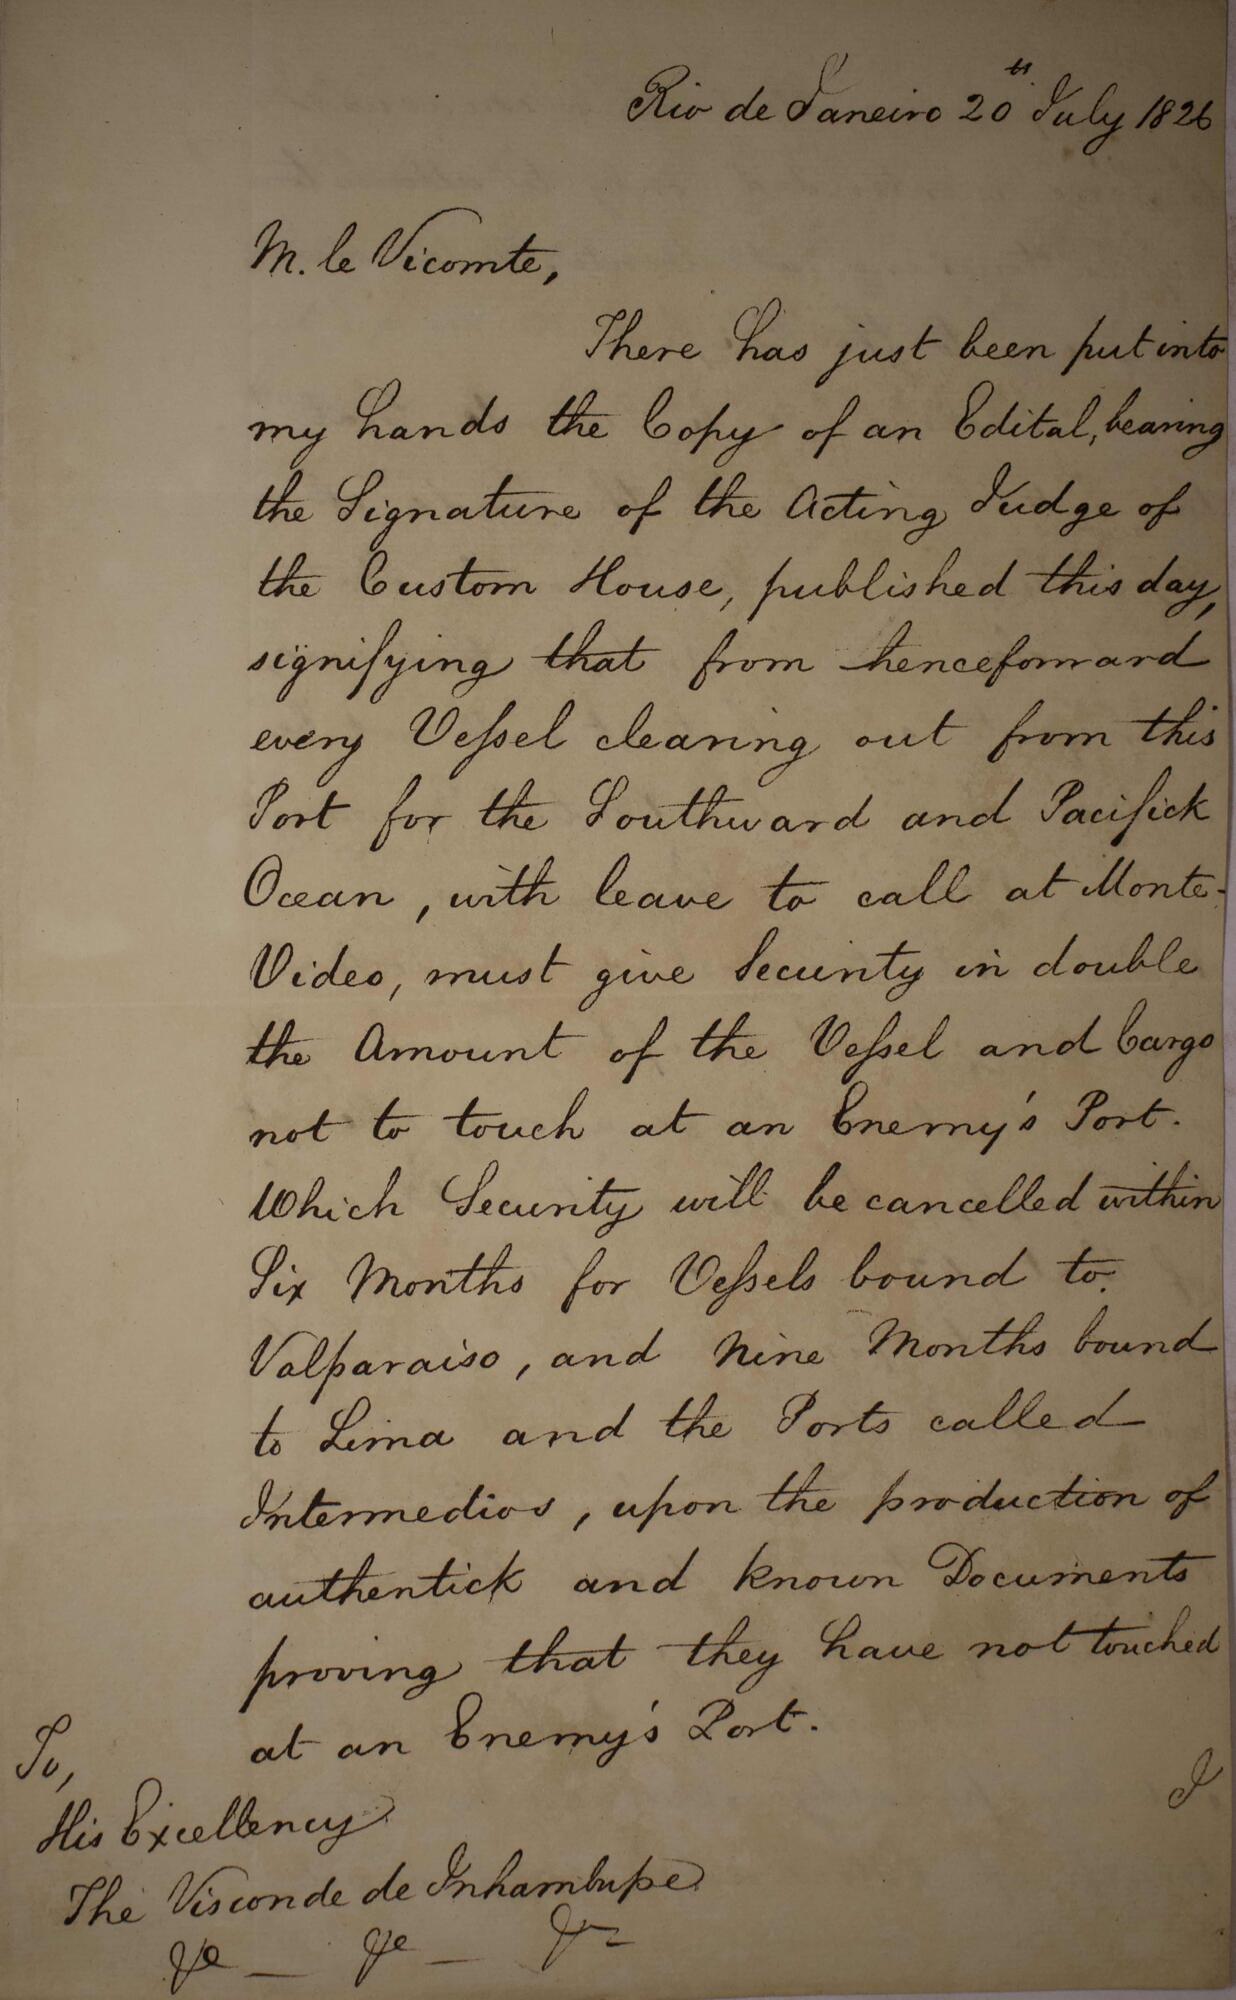 Rio de Janeiro 20th July 1826
M. le Vicomte,
There has just been put into
my hands the Copy of an Edital, bearing
the Signature of the Acting Judge of
the Custom House, published this day,
signifying that from henceforward
every Vessel clearing out from this
Port for the Southward and Pacifick
Ocean, with leave to call at Monte-
Video, must give Security in double
the Amount of the Vessel and Cargo
not to touch at an Enemy's Port.
Which Security will be cancelled within
Six Months for Vessels bound to
Valparaiso, and Nine Months bound
to Lima and the Ports called
Intermedios, upon the production of
authentick and known Documents
proving that they have not touched
at an Enemy's Port.
I
To,
His Excellency
The Visconde de Inhambupe
&c — &c — &c